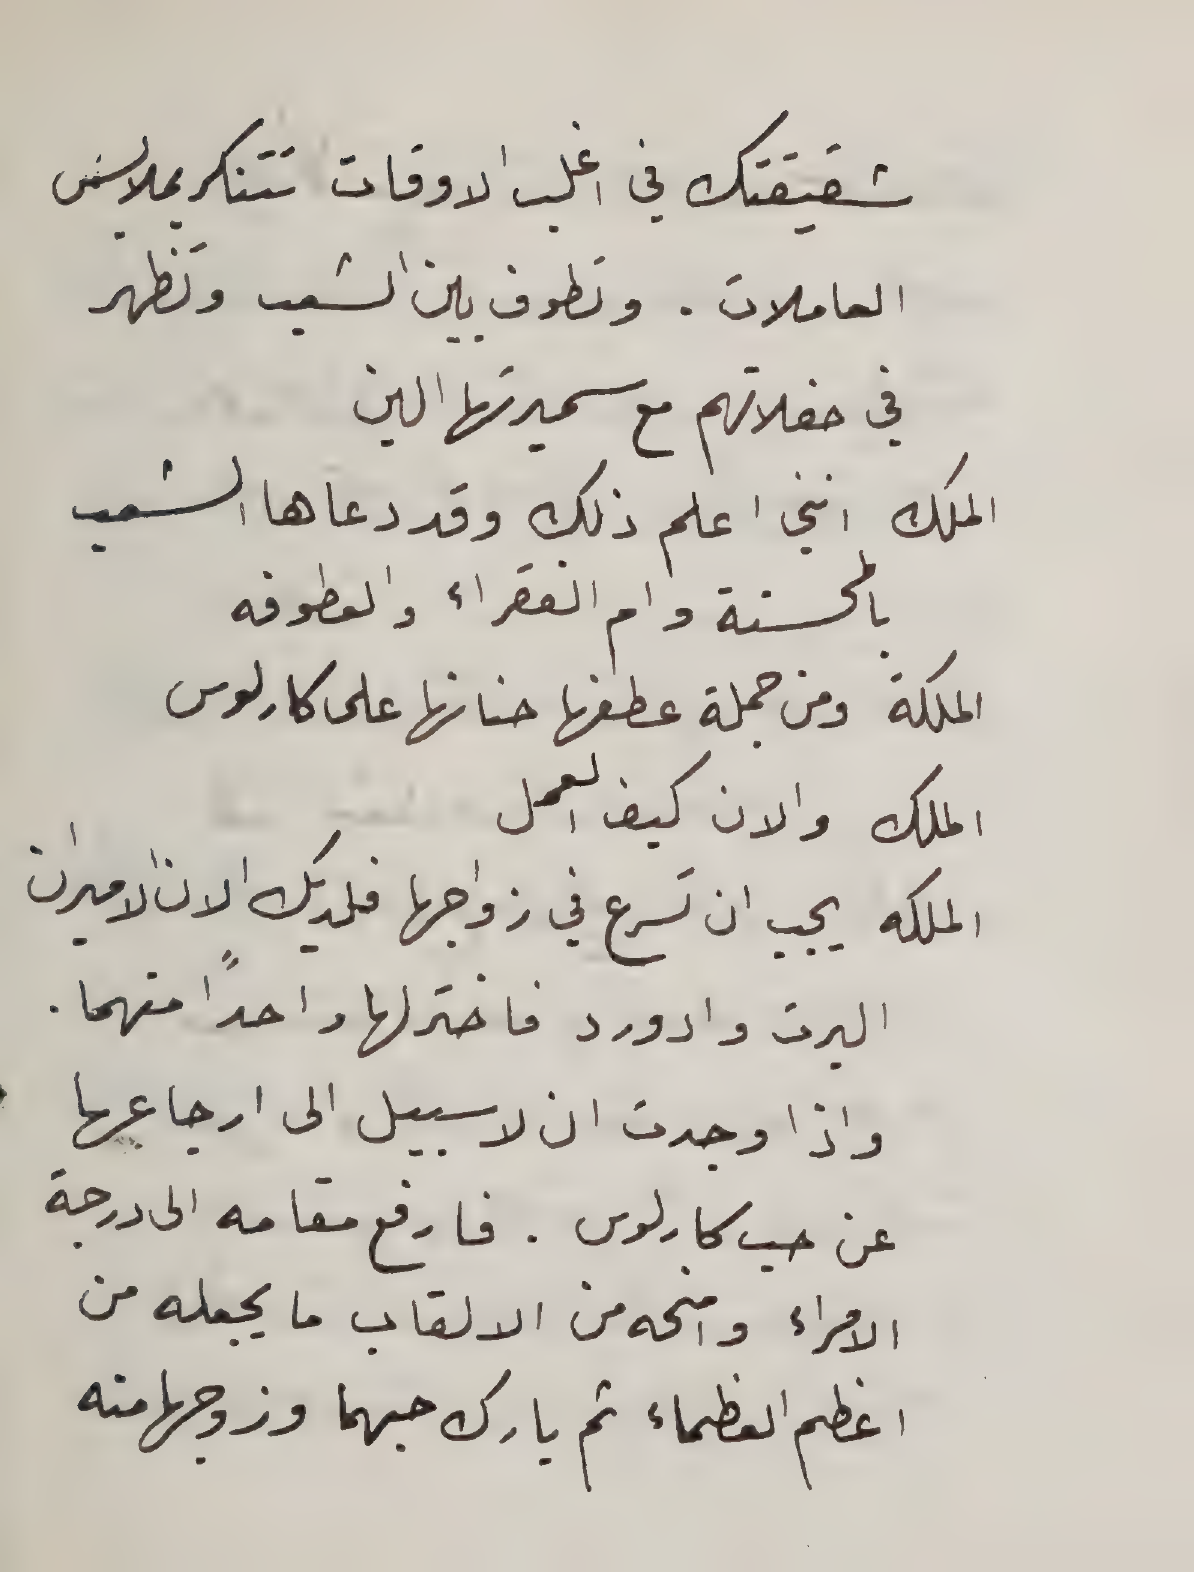 شقيقتك في اغلب الاوقات تتنكر بملابس
العاملات . وتطوف بين الشعب وتظهر
في حفلاتهم مع سميرتها الين
الملك انني اعلم ذلك وقد دعاها الشعب
بالمحسنة وام الفقراء والعطوفه
الملكة ومن جملة عطفها حنانها على كارلوس
الملك والان كيف العمل
الملكه يجب ان تسرع في زواجها فلديك الان الاميران
البرت وادورد فاختر لها واحدًا منهما .
واذا وجدت ان لا سبيل الى ارجاعها
عن حب كارلوس . فارفع مقامه الى درجة
الامراء وامنحه من الالقاب ما يجعله من
اعظم العظماء ثم بارك حبهما وزوجها منه